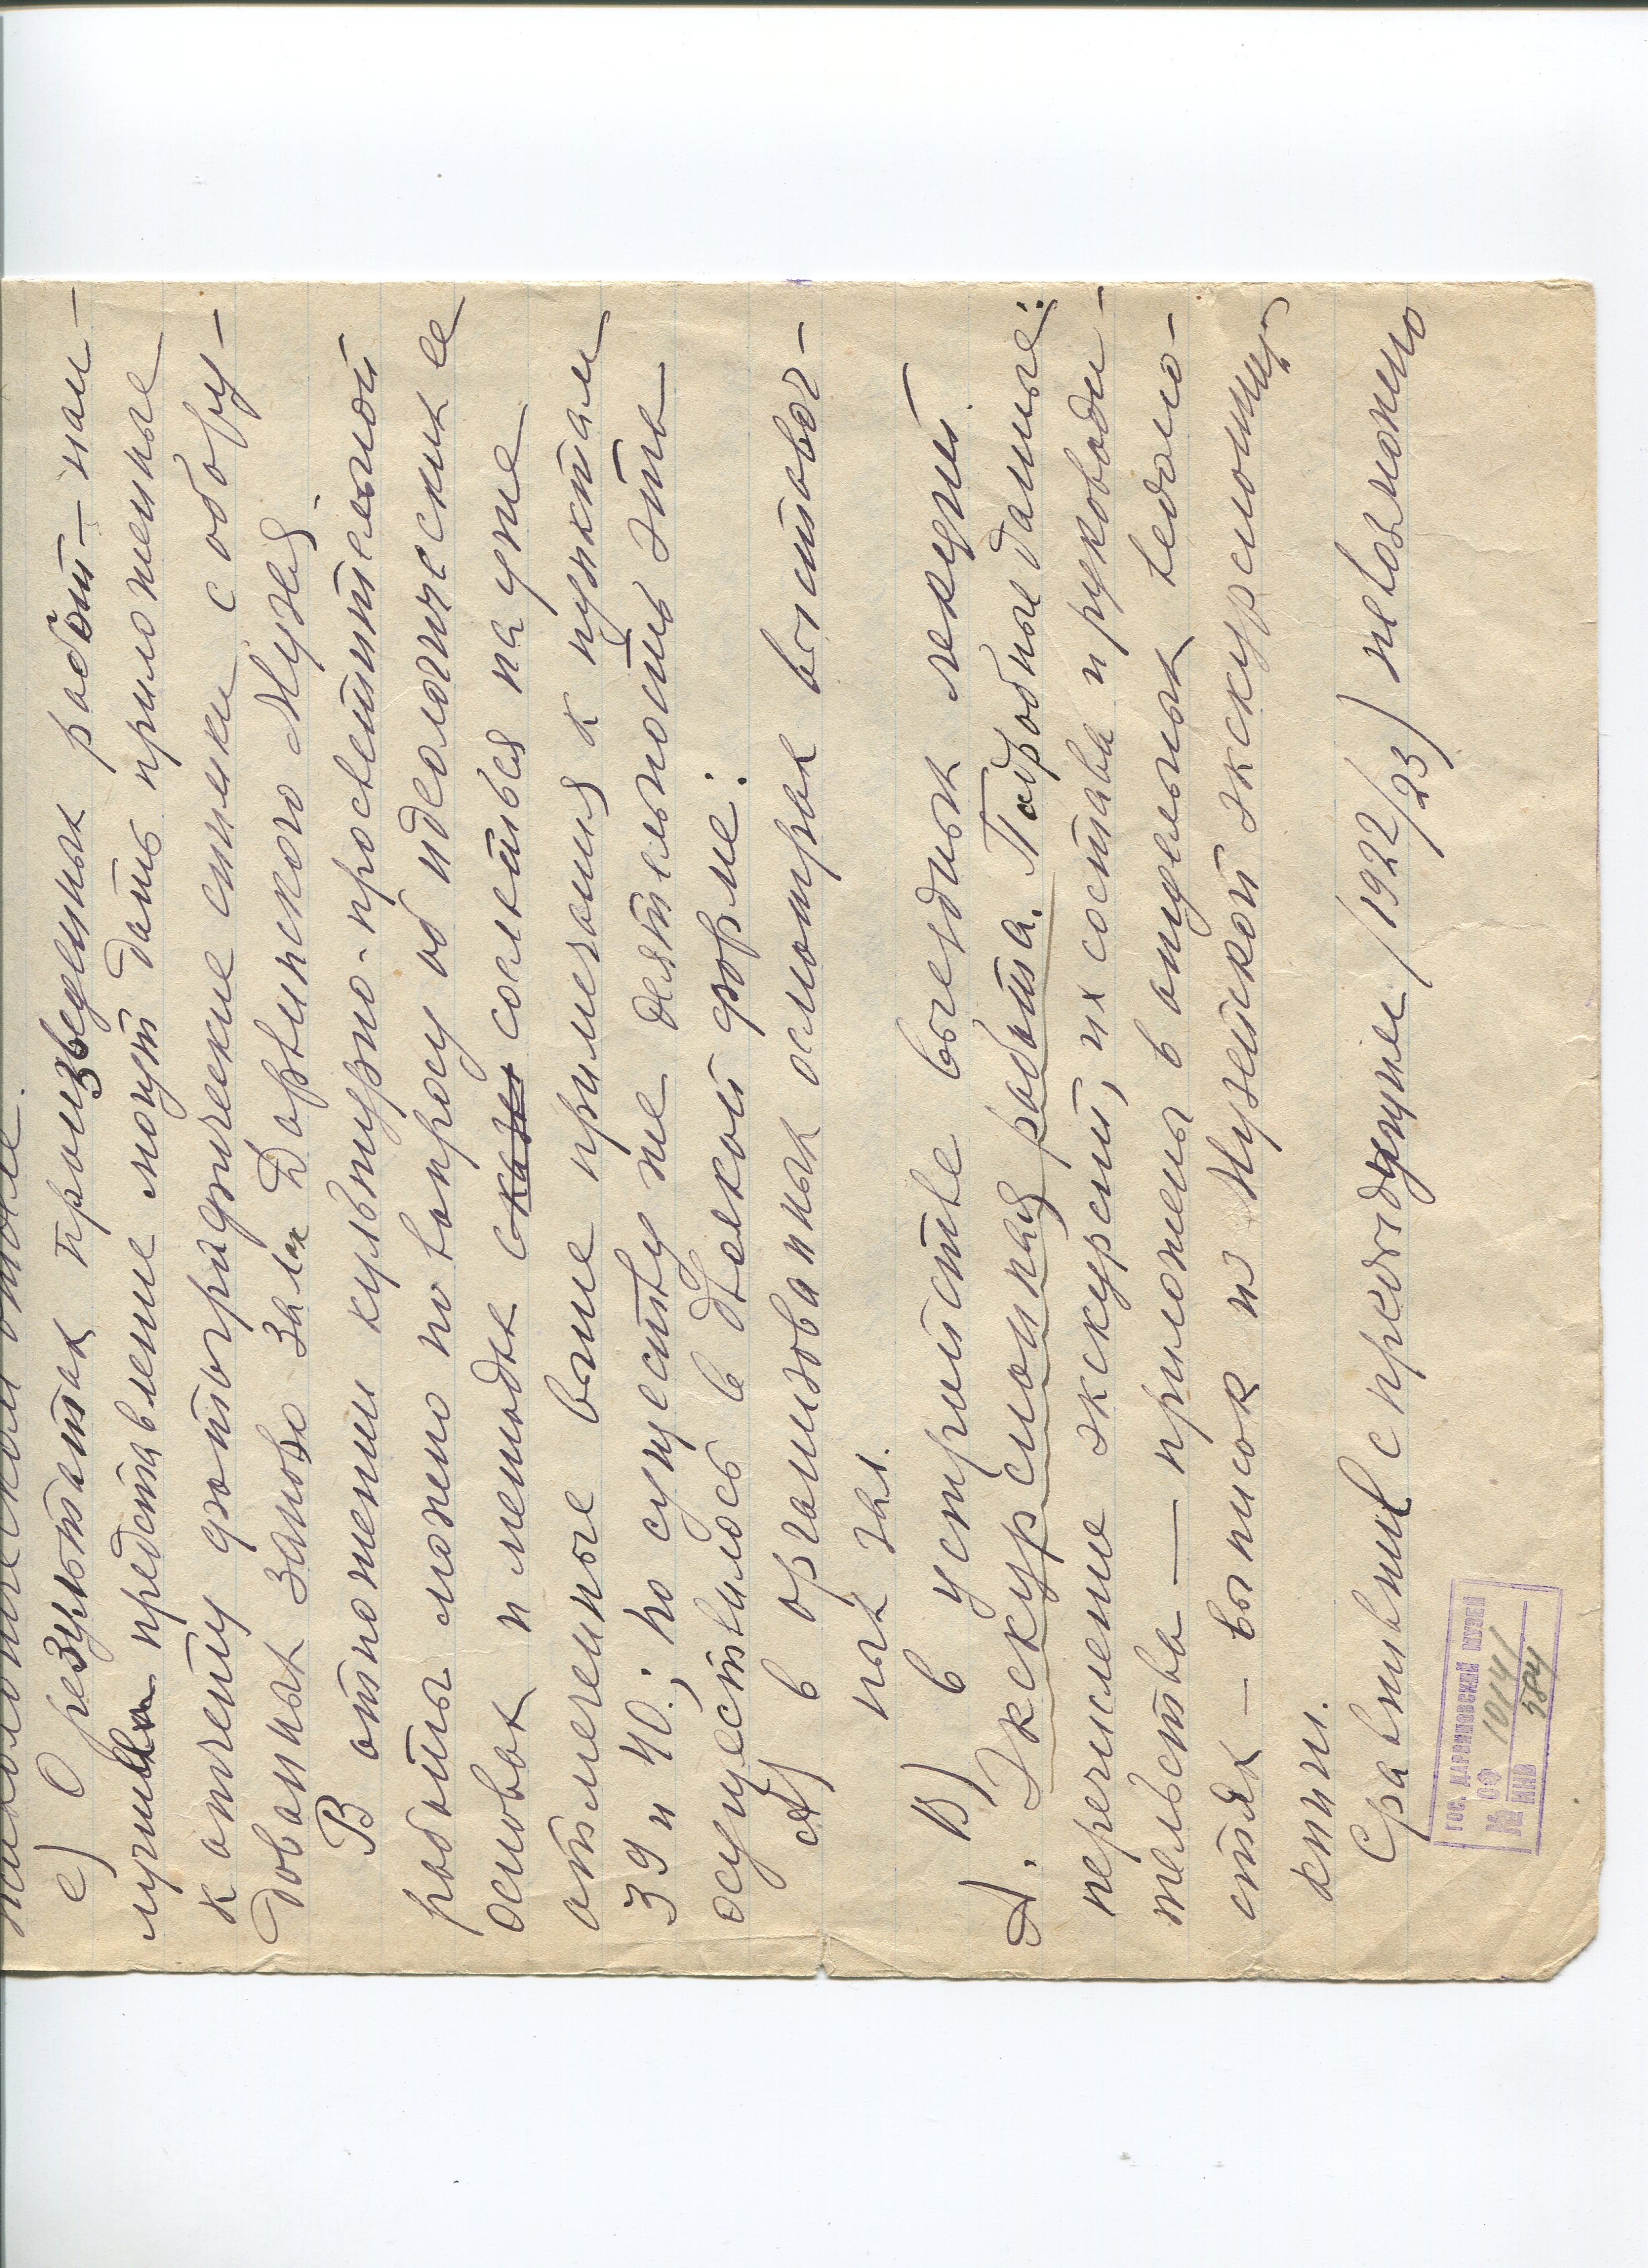 е) О результатах произведенных работ — наи-
лучшее представление могут дать приложенные
к отчету фотографические снимки с обору-
дованных заново залах Дарвинского Музея.
В отношении культурно-просветительной
работы можно по вопросу об идеологических ее
основах и методах сказ сослаться на уже
отмеченные выше примечания к пунктам
39 и 40.; по существу же деятельность эта
осуществилась в двоякой форме:
А) в организованных осмотрах выставоч-
ных зал.
В) в устройстве выездных лекций.
А. Экскурсионная работа. Подробные данные:
перечисление экскурсий, их состава и руководи-
тельства — приложены в отдельных ведомо-
стях — выписок из Музейской экскурсионной
книги.
Сравнивить с предыдущим (1922/23) невозможно
ГОС. ДАРВИНОВСКИЙ МУЗЕЙ
№ ОФ 10141
ИНВ 584